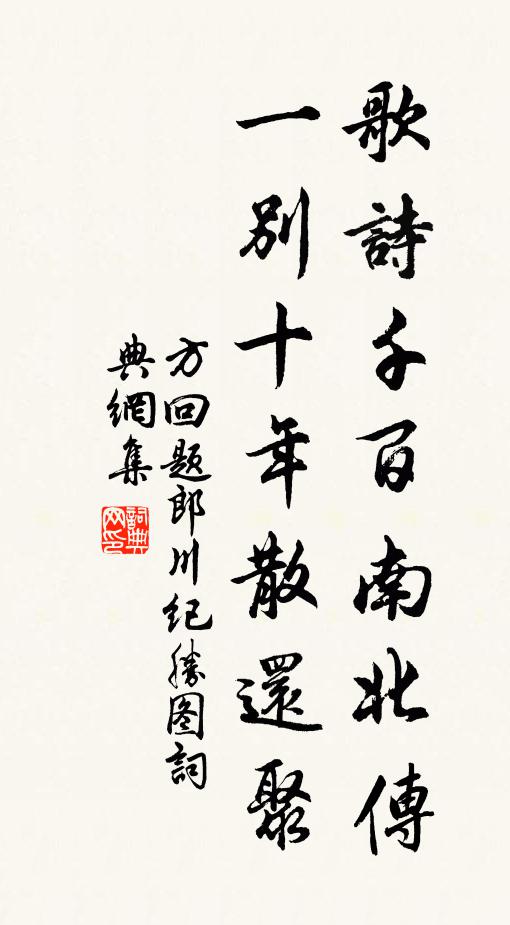 歌詩千百南北傳
一別十年散還聚
方回題郎川紀勝图詞
典網集
詞典
网印